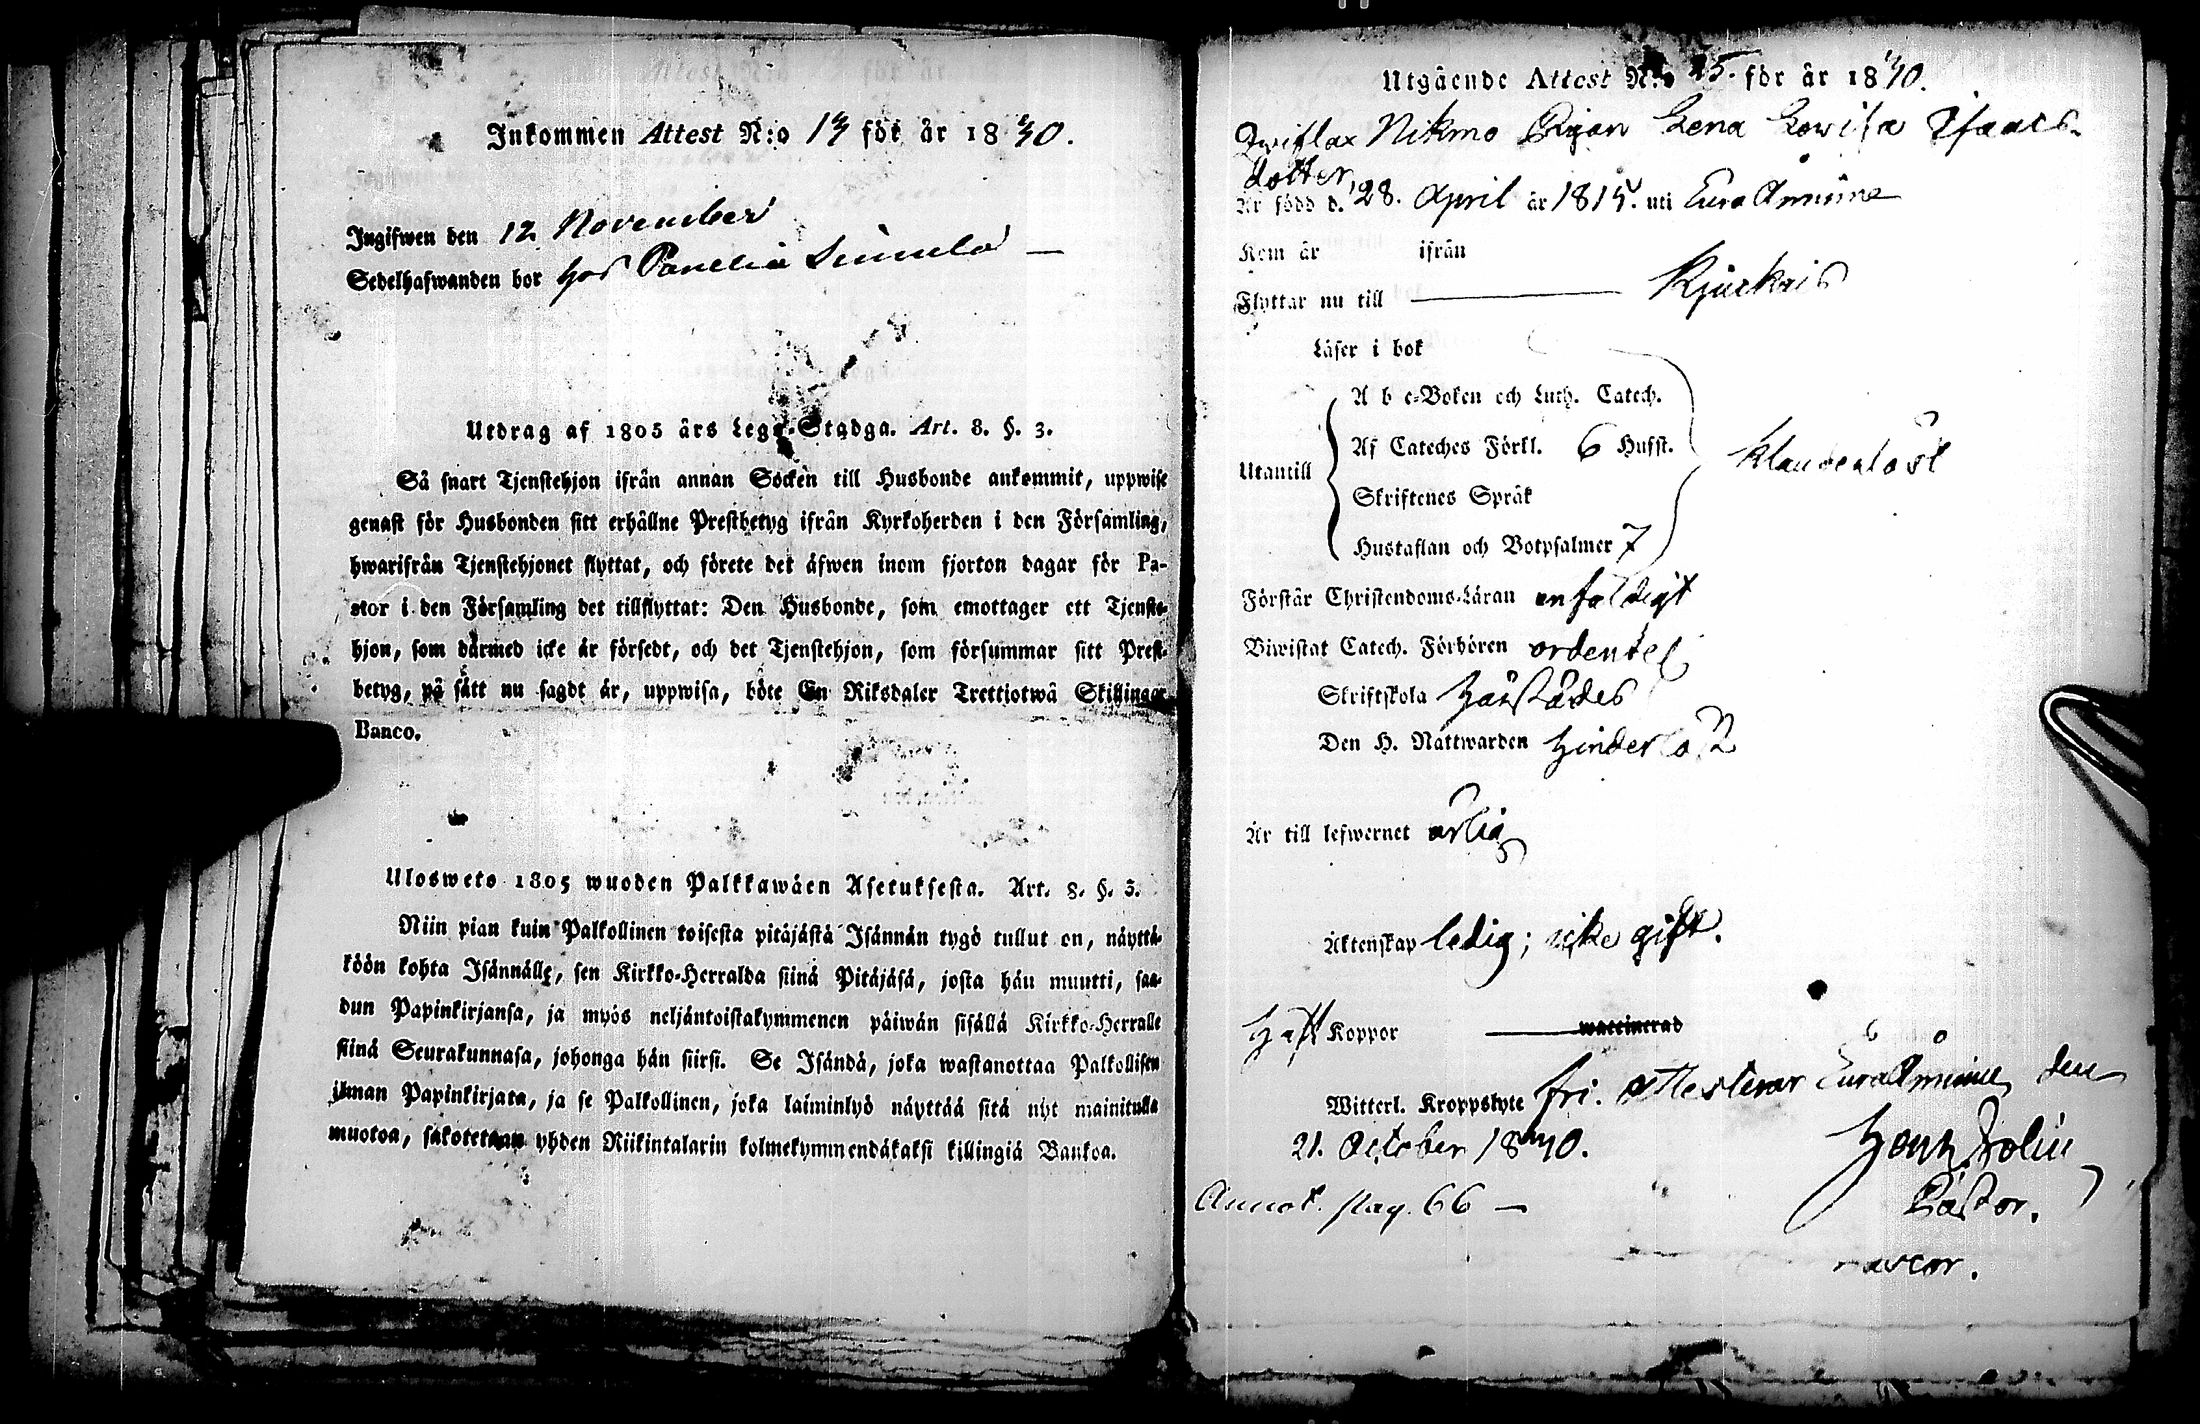 Inkommen Attest N:o 14 för år 1840.
Ingifwen den 12 November
Sedelhafwanden bor hos Panelia
Utdrag af 1805 års Lego-Stadga. Art. 8. §. 3.
Så snart Tjenstehjon ifrån annan Socken till Husbonde ankommit, uppwise
genast för Husbonden sitt erhållne Prestbetyg ifrån Kyrkoherden i den Församling,
hwarifrån Tjenstehjonet flyttat, och förete det äfwen inom fjorton dagar för Pa-
stor i den Församling det tillflyttat: Den Husbonde, som emottager ett Tjenste-
hjon, som därmed icke är försedt, och det Tjenstehjon, som försummar sitt Prest-
betyg, på sätt nu sagdt är, uppwisa, böte En Riksdaler Trettiotwå Skillingar
Banco.
Ulosweto 1805 wuoden Palkkawäen Asetuksesta. Art. 8. §. 3.
Niin pian kuin Palkollinen toisesta pitäjästä Isännän tygö tullut on, näyttä-
köön kohta Isännälle, sen Kirkko-Herralda siinä Pitäjäsä, josta hän muutti, saa-
dun Papinkirjansa, ja myös neljäntoistakymmenen päiwän sisällä Kirkko-Herralle
siinä Seurakunnasa, johonga hän siirsi. Se Isändä, joka wastanottaa Palkollisen
ilman Papinkirjata, ja se Palkollinen, joka laiminlyö näyttää sitä nyt mainitulla
muotoa, sakotetaan yhden Riikintalarin kolmekymmendäkaksi killingiä Bankoa.
Utgående Attest N:o 25. för år 1840.
Nikmo Pigan Lena Lowisa Isaacs-
dotter,
Är född d. 28. April år 1815. uti Eura Åminne
Kom år ifrån
Flyttar nu till Kjuckais
Läser i bok
Utantill
A b c-Boken och Luth. Catech.
Af Cateches Förkl. 6 Hufst.
Skriftenes Språk
Hustaflan och Botpsalmer 7
Klanderlöst
Förstår Christendoms-Läran enfaldigt
Biwistat Catech. Förhören ordentel
Skriftskola härstädes
Den H. Nattwarden hinderlöst
Är till lefwernet ärlig
Äktenskap ledig; icke gift.
Haft Koppor waccinerad
Witterl. Kroppslyte fri. attesterar Eura Åminne den
21. October 1840.
Pastor.
Annot. pag. 66 —